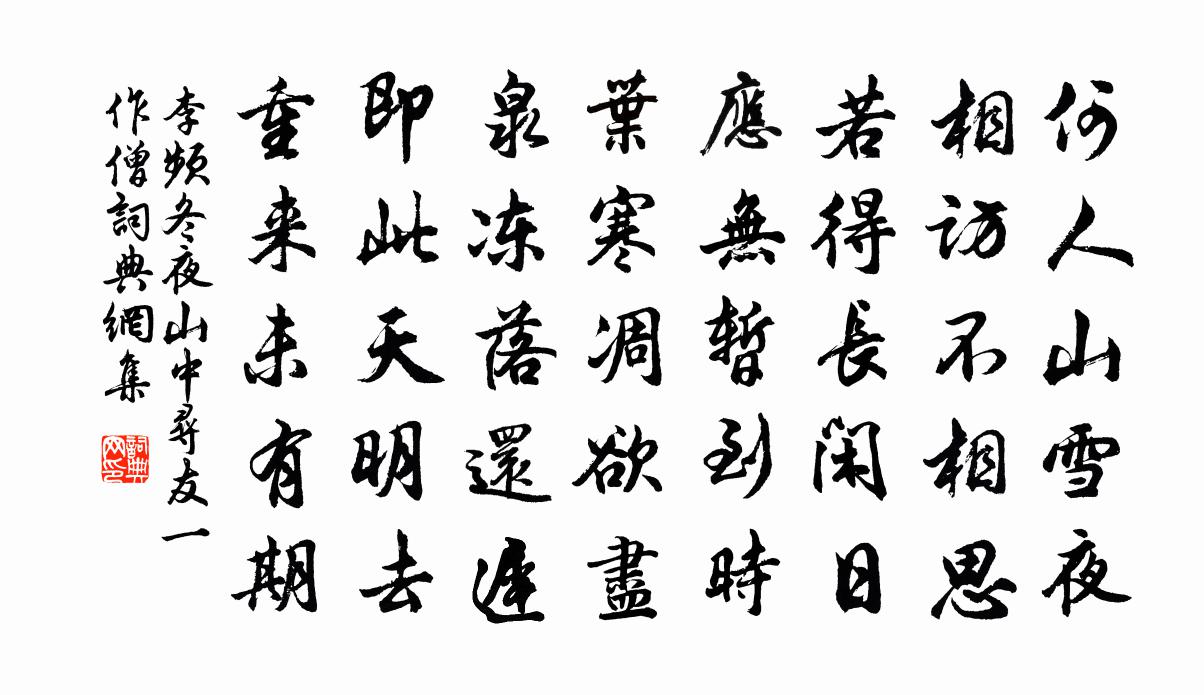 何人山雪夜
相訪不相思
若得長閑日
應無暫到時
葉寒凋欲盡
泉冻落還遲
即此天明去
重来未有期
李頻冬夜山中尋友一
作僧詞典網集
詞典
网印